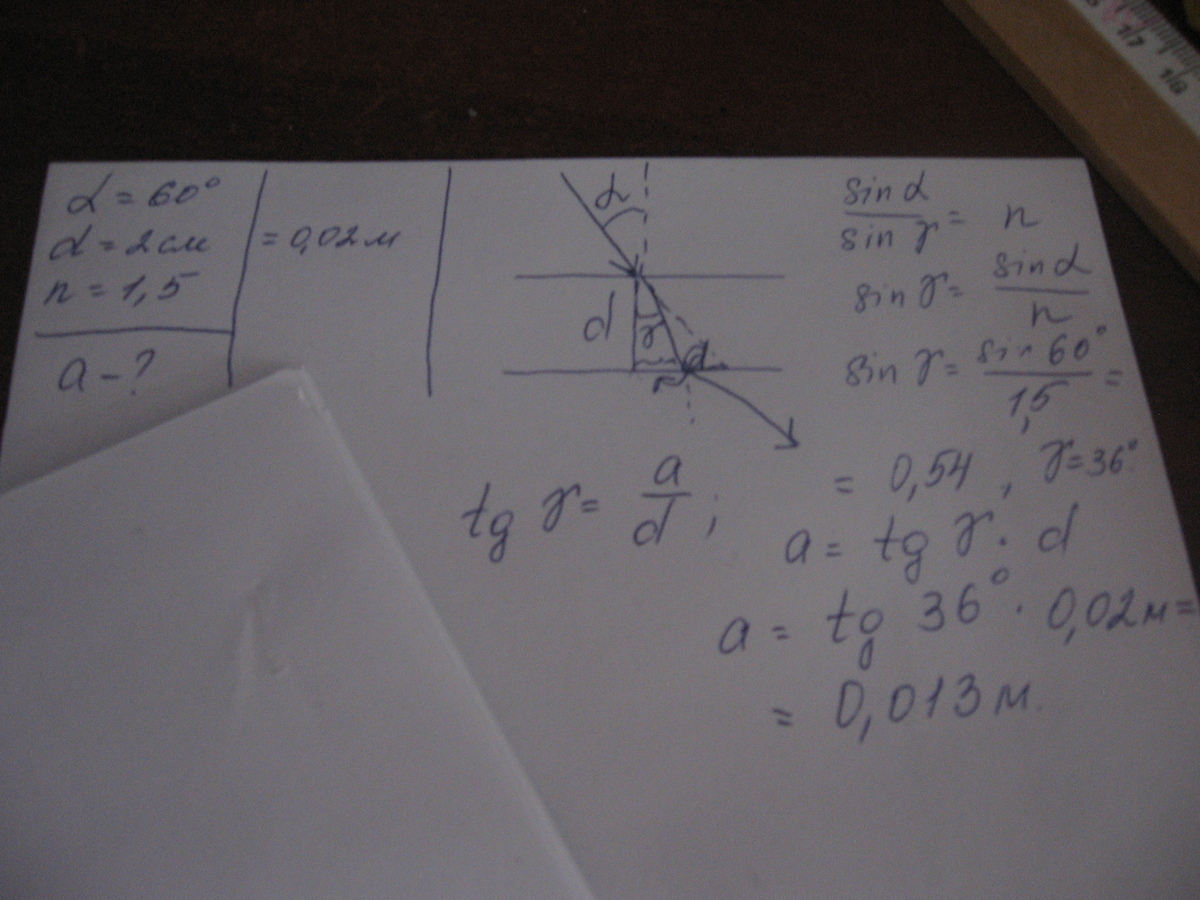 α = 60°
d = 2 см
= 0,02 м
n = 1,5
a - ?
α
d
γ
sin α / sin γ = n
sin γ = sin α / n
sin γ = sin 60° / 1,5 =
= 0,54 , γ = 36°
tg γ = a / d ;
a = tg γ · d
a = tg 36° · 0,02 м =
= 0,013 м